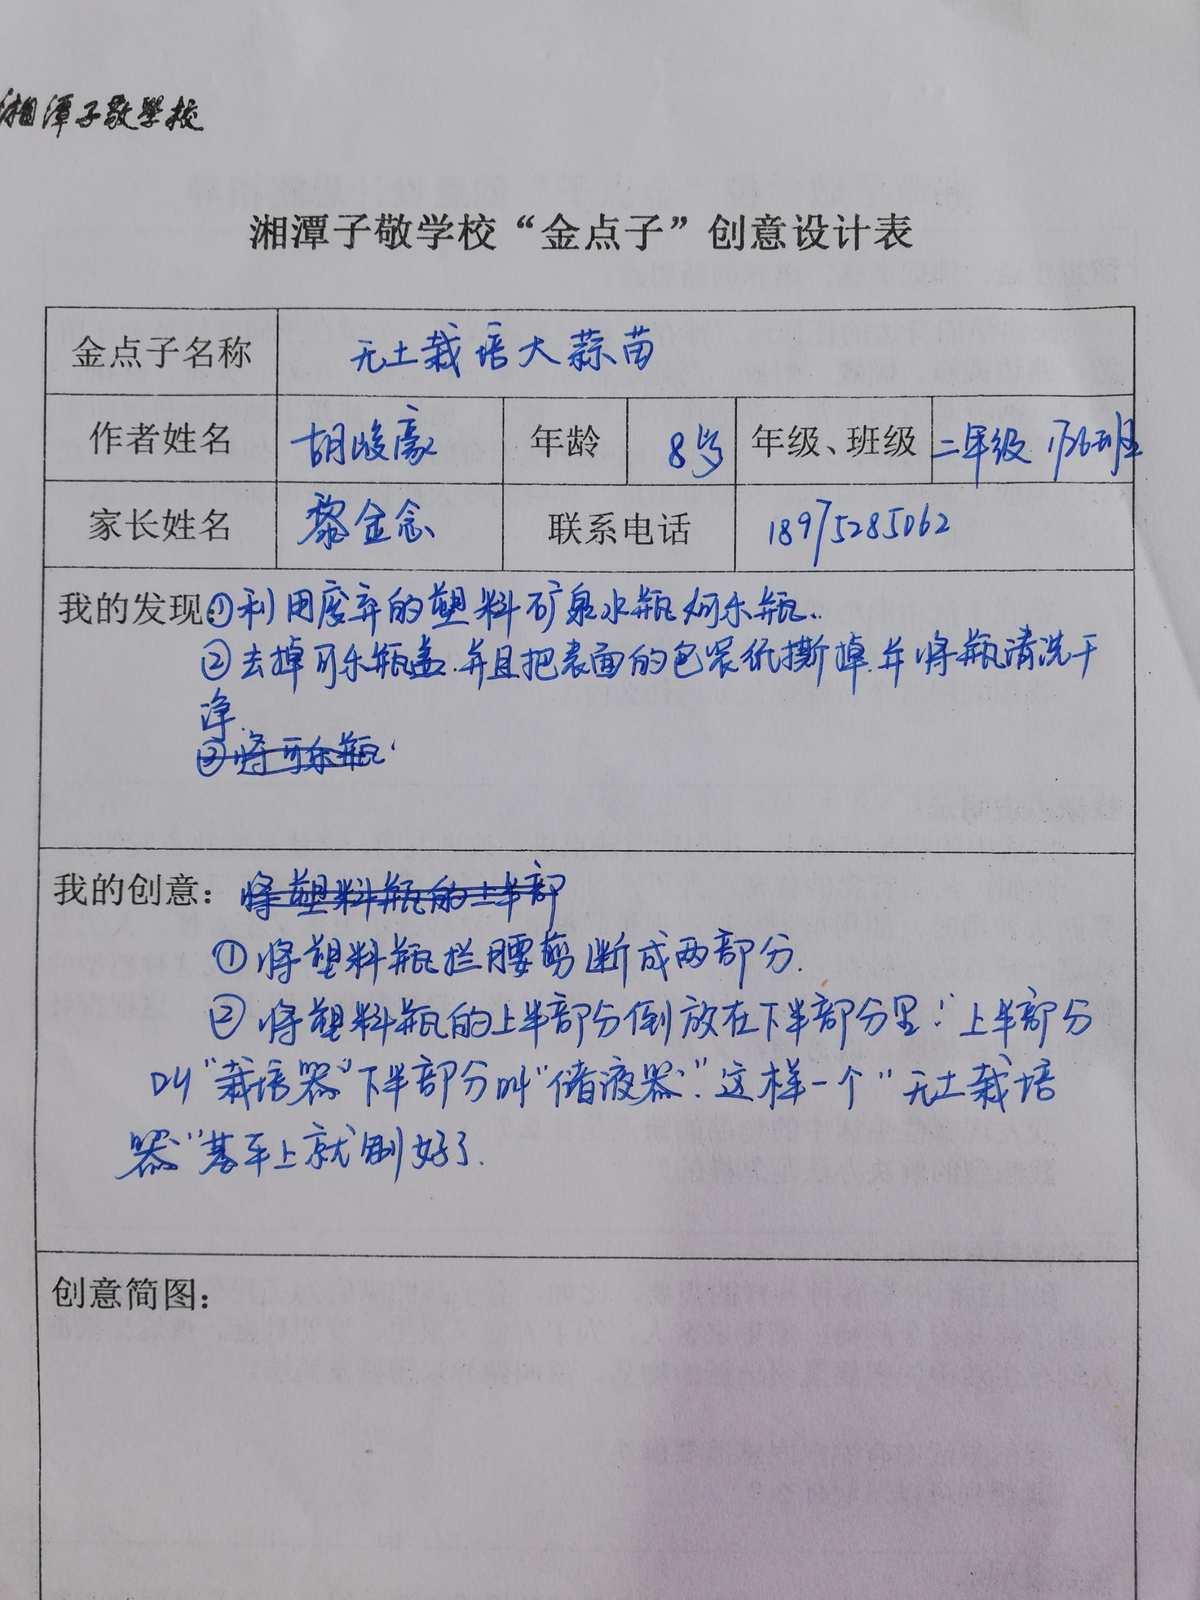 湘潭子敬学校
湘潭子敬学校“金点子”创意设计表
金点子名称 无土栽培大蒜苗
作者姓名 胡峻豪 年龄 8岁 年级、班级 二年级 1726班
家长姓名 黎金念 联系电话 18975285062
我的发现:①利用废弃的塑料矿泉水瓶、可乐瓶.
②去掉可乐瓶盖.并且把表面的包装纸撕掉.并将瓶清洗干
净.
③将可乐瓶
我的创意：将塑料瓶的上半部
①将塑料瓶拦腰剪断成两部分.
②将塑料瓶的上半部分倒放在下半部分里."上半部分
叫"栽培器"下半部分叫"储液器".这样一个"无土栽培
器"基本上就制好了.
创意简图：